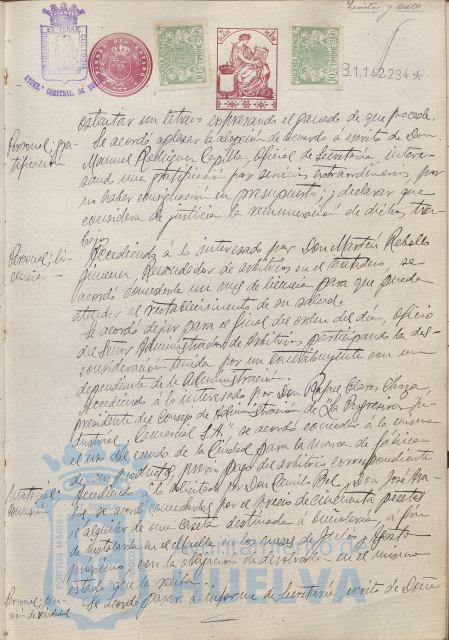 B.1.142.234*
ostentar un letrero expresando el ganado de que procede.
Personal; gra-
tificación
Se acordó aplazar la adopción de acuerdo á escrito de Don
Manuel Rodríguez Capilla, Oficial de Secretaría, intere-
sando una gratificación por servicios extraordinarios, por
no haber consignación en presupuesto; y declarar que
considera de justicia la remuneración de dichos tra-
bajos.
Personal; li-
cencia
Accediendo á lo interesado por Don Martín Rebollo
Jimenez, Recaudador de arbitrios en el Matadero, se
acordó concederle un mes de licencia para que pueda
atender al restablecimiento de su salud.
Se acordó dejar para el final del orden del día, oficio
del Señor Administrador de Arbitrios participando la des-
consideración tenida por un contribuyente con un
dependiente de la Administración.
Accediendo á lo interesado por Don Rafael
Presidente del Consejo de Administración de "La Progresiva In-
dustrial y Comercial S.A." se acordó conceder á la misma
el uso del escudo de la Ciudad para la marca de fábrica
de sus productos, previo pago del arbitrio correspondiente
Material;
Accediendo á lo solicitado por Don Camilo Bel y Don José
se acordó concederles por el precio de cincuenta pesetas
el alquiler de una caseta destinada á, á fin
de instalarla en el Muelle en los meses de Julio y Agosto
próximos con la obligación de devolverla en el mismo
estado que la reciba.
Personal;
Se acordó pasar á informe de Secretaría, escrito de Doña
Ayuntamiento de
HUELVA